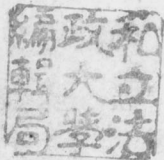 私立法
政大學
編輯局